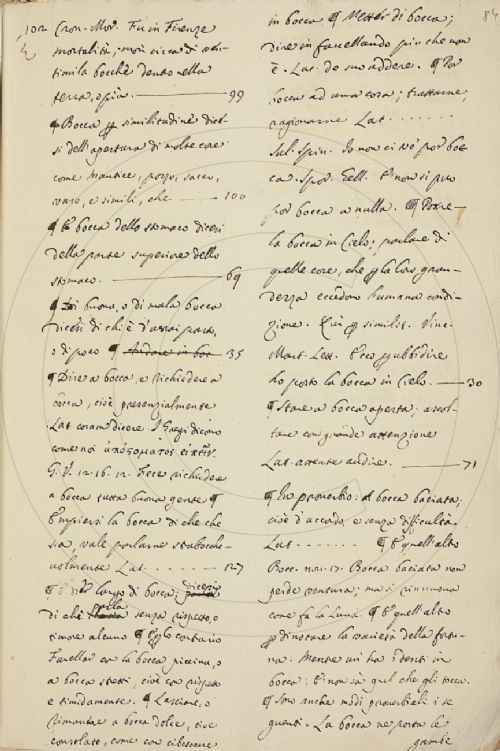 102 Cron. Mor. Fu in Firenze
mortalità; morì circa di ven-
timila bocche dentro nella
terra, o più. 99
¶ Bocca p similitudine dices-
si dell'apertura di molte cose
come Mantice, pozzo, sacco,
vaso, e simili, che 100
¶ E bocca dello stomaco dicesi
della parte superiore dello
stomaco. 69
¶ Di buona, o di mala bocca
dicesi di chi è d'assai pasto,
o di poco ¶ Andare in boc 35
¶ Dire a bocca, e richiedere a
bocca, cioè presenzialmente
Lat. coram dicere. I Greci dicono
come noi ἀπὸ στόματος εἰπεῖν.
G. V. 12. 16. 12. Fece richiedere
a bocca tutta buona gente ¶
Empiersi la bocca di che che
sia, vale parlarne strabocche-
volmente Lat. 127
¶ E largo di bocca; dicesi
di chi parla senza rispetto, o
timore alcuno ¶ E p lo contario
Favellar con la bocca piccina, o
a bocca stretta, cioè con rispetto
e timidamente. ¶ Lasciare, o
rimanere a bocca dolce, cioè
consolato, come con
84
in bocca ¶ Metter di bocca;
dire in favellando più che non
è. Lat. de suo addere. ¶ Por
bocca ad una cosa; trattarne,
ragionarne Lat.
Sal. Spin. Io non ci vo' por boc
ca. Spor. Gell. E non ci può
por bocca a nulla. ¶ Porre
la bocca in Cielo; parlare di
quelle cose, che p la loro gran-
dezza eccedono l'umana condi-
zione. E p similit. Vinc.
Mart. Lett. Ecco p ubbidire
ho posto la bocca in Cielo. 30
¶ Stare a bocca aperta; ascol-
tare con grande attenzione
Lat. attente audire. 71
¶ In proverbio: A bocca baciata;
cioè d'accordo, e senza difficultà.
Lat. ¶ E quell'altro
Bocc. nov. 17. Bocca baciata non
perde ventura; ma si rinnuova
come fa la Luna. ¶ E quell'altro
p dinotare la varietà della fortu-
na: Mentre un ha i denti in
bocca: E' non sa quel che gli tocca.
¶ Sono anche modi proverbiali i se
guenti. La bocca ne porta le
gambe